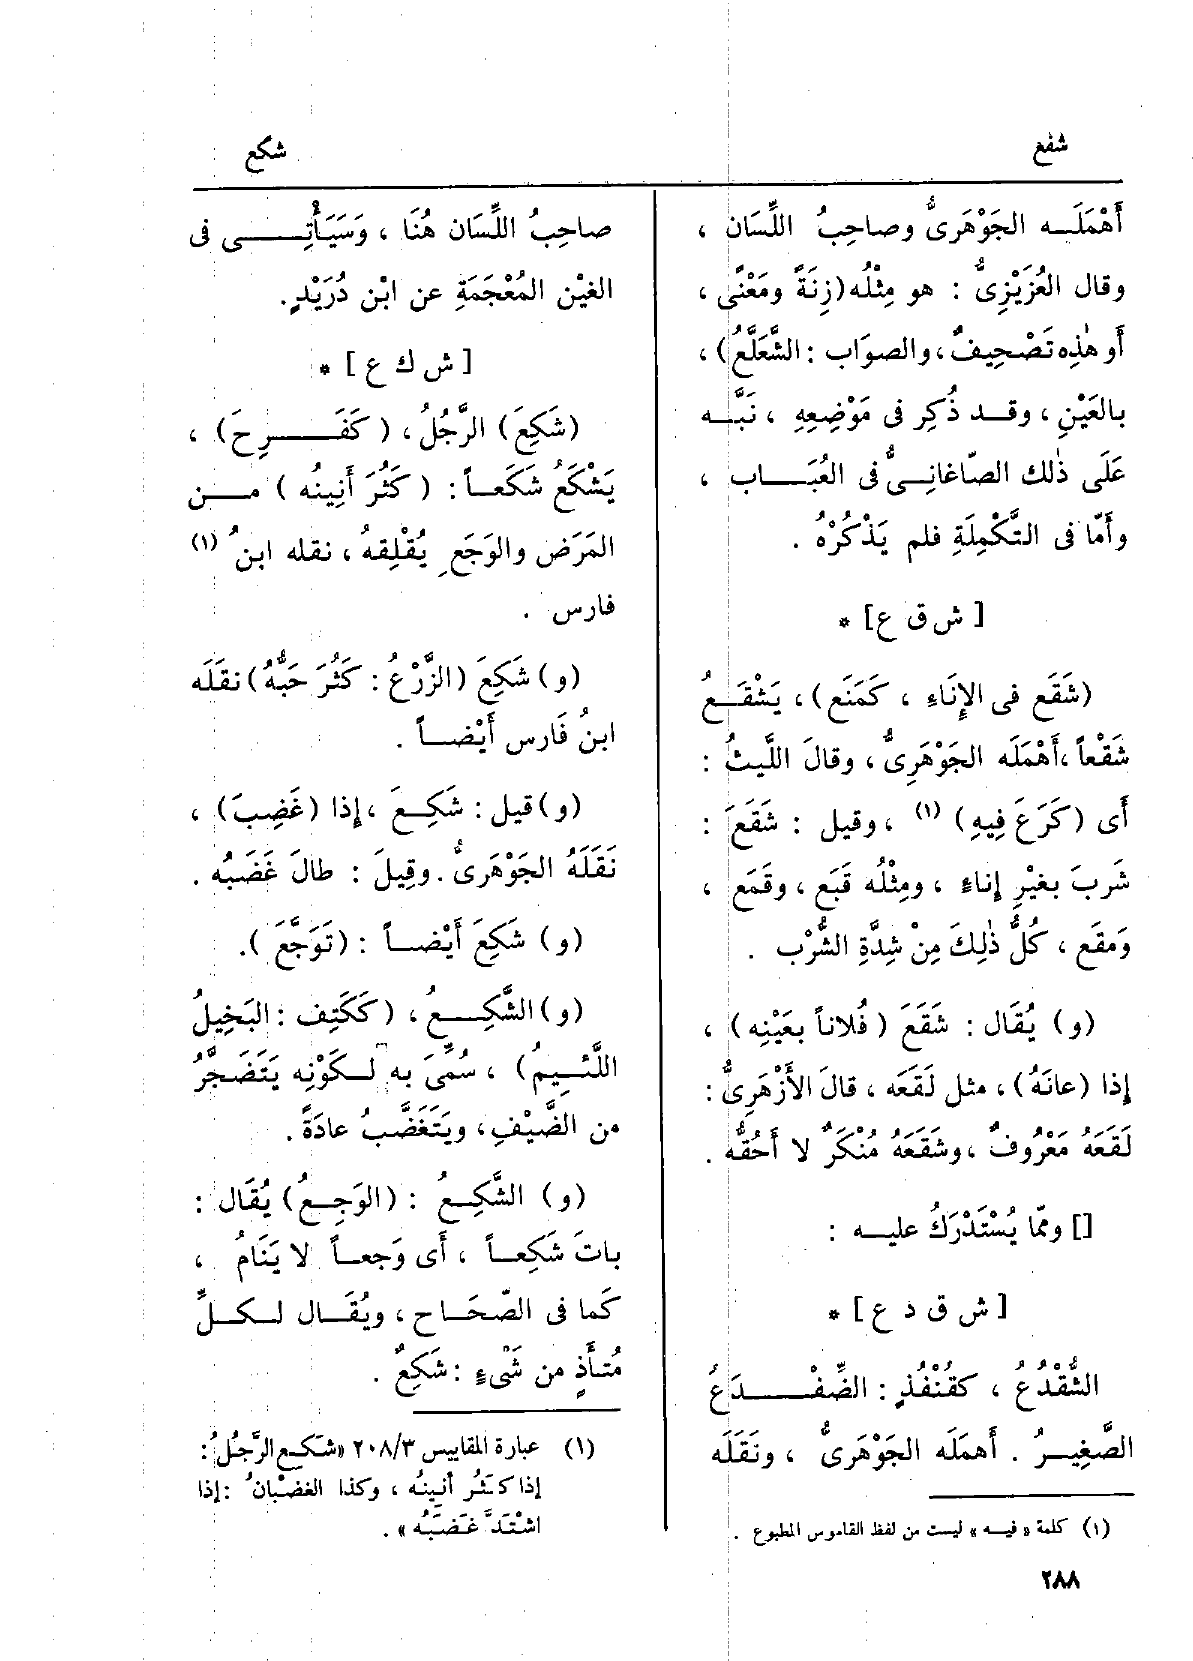 شفع
شكع
أَهْمَلَـه الجَوْهَرِىُّ وصاحِبُ اللِّسَان ،
وقال العُزَيْزِىُّ : هو مِثْلُه (زِنَةً ومَعْنًى ،
أَو هٰذِه تَصْحِيفٌ ، والصوَاب : الشَّعَلَّعُ) ،
بالعَيْنِ ، وقـد ذُكِر فى مَوْضِعِهِ ، نَبَّـه
عَلَى ذٰلك الصّاغانِىُّ فى العُبَـاب ،
وأَمّا فى التَّكْمِلَةِ فلم يَذْكُرْهُ .
[ ش ق ع ] *
(شَقَع فى الإِنَاءِ ، كَمَنَع) ، يَشْقَـعُ
شَقْعاً ، أَهْمَلَه الجَوْهَرِىُّ ، وقالَ اللَّيثُ :
أَى (كَرَعَ فِيهِ) (١) ، وقيل : شَقَعَ :
شَربَ بغيْرِ إِناءٍ ، ومِثْلُه قَبَع ، وقَمَع ،
وَمقَع ، كُلُّ ذٰلِكَ مِنْ شِدَّةِ الشُّرْب .
(و) يُقَال : شَقَعَ (فُلاناً بعَيْنِه) ،
إِذا (عانَهُ) ، مثل لَقَعَه ، قالَ الأَزْهَرِىُّ :
لَقَعَهُ مَعْرُوفٌ ، وشَقَعَهُ مُنْكَرٌ لا أَحُقُّه .
[] وممّا يُسْتَدْرَكُ عليـه :
[ ش ق د ع ] *
الشُّقْدُعُ ، كقُنْفُذٍ : الضِّفْـدَعُ
الصَّغِيـرُ . أَهملَه الجَوْهَرِىُّ ، ونَقَلَه
(١) كلمة « فيـه » ليست من لفظ القاموس المطبوع .
صاحِبُ اللِّسَان هُنَا ، وَسَيَأْتِـى فى
الغيْن المُعْجَمَةِ عن ابْن دُرَيْدٍ .
[ ش ك ع ] *
(شَكِعَ) الرَّجُلُ ، (كَفَـرِحَ) ،
يَشْكَعُ شَكَعـاً : (كَثُرَ أَنِينُه) مـن
المَرَض والوَجَعِ يُقْلِقهُ ، نقله ابنُ (١)
فارس .
(و) شَكِعَ (الزَّرْعُ : كَثُرَ حَبُّهُ) نقَلَه
ابنُ فَارس أَيْضـاً .
(و) قيل : شَكِـعَ ، إِذا (غَضِبَ) ،
نَقَلَهُ الجَوْهَرِىُّ . وقِيلَ : طالَ غَضَبُه .
(و) شَكِعَ أَيْضـاً : (تَوَجَّعَ ) .
(و) الشَّكِـعُ ، (كَكَتِف : البَخِيلُ
اللَّئـيمُ) ، سُمِّىَ به لـكَوْنِه يَتَضَجَّرُ
من الضَّيْفِ ، ويَتَغَضَّبُ عادَةً .
(و) الشَّكِـعُ : (الوَجِـعُ) يُقَال :
باتَ شَكِعـاً ، أَى وَجعـاً لا يَنَامُ ،
كَما فى الصّحَـاح ، ويُقَـال لـكـلِّ
مُتـأَذٍّ من شَىْءٍ : شَكِعٌ .
(١) عبارة المقاييس ٢٠٨/٣ « شكـع الرَّجُلُ :
إذا كَثُر أنينُه ، وكذا الغضْبانُ : إذا
اشْتَدَّ غَضَبُه » .
٢٨٨